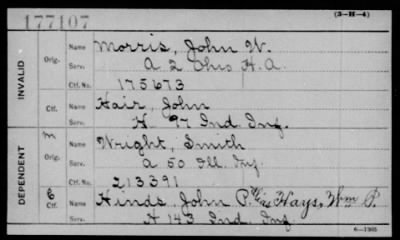 177107
(3-H-4)
INVALID
Orig. Name Morris, John W.
Serv. A 2 Ohio H.A.
Ctf. No. 175673
Ctf. Name Hair, John
Serv. H 97 Ind. Inf.
DEPENDENT
m Orig. Name Wright, Smith
Serv. A 50 Ill. Inf.
Ctf. No. 213391
C Ctf. Name Hinds, John P. alias Hays, Wm P.
Serv. H 143 Ind. Inf.
6-1305